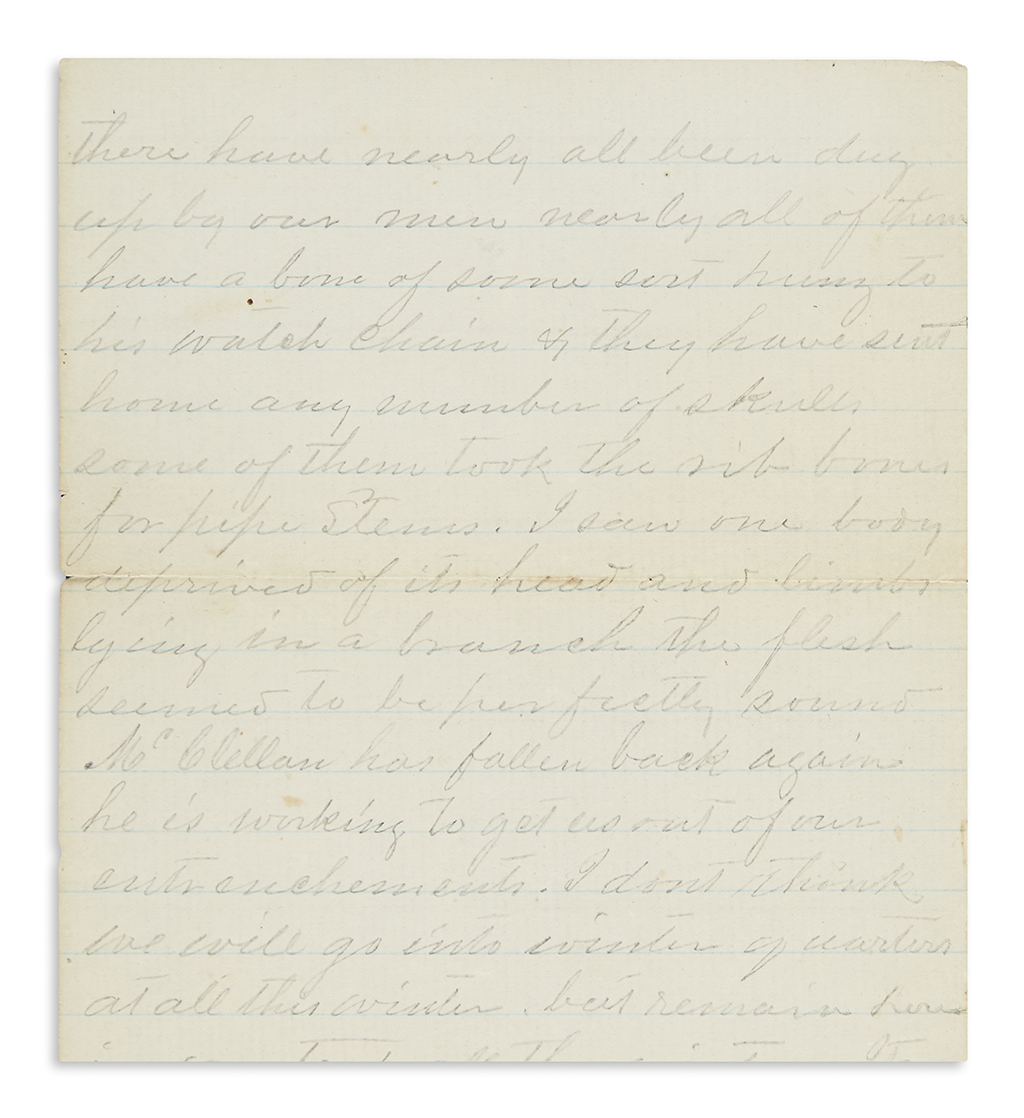 there have nearly all been dug
up by our men nearly all of them
have a bone of some sort hung to
his watch chain & they have sent
home any number of skulls
some of them took the rib bones
for pipe Stems. I saw one body
deprived of its head and limbs
lying in a branch the flesh
seemed to be perfectly sound
McClellan has fallen back again
he is working to get us out of our
entrenchements. I dont think
we will go into winter quarters
at all this winter. but remain here